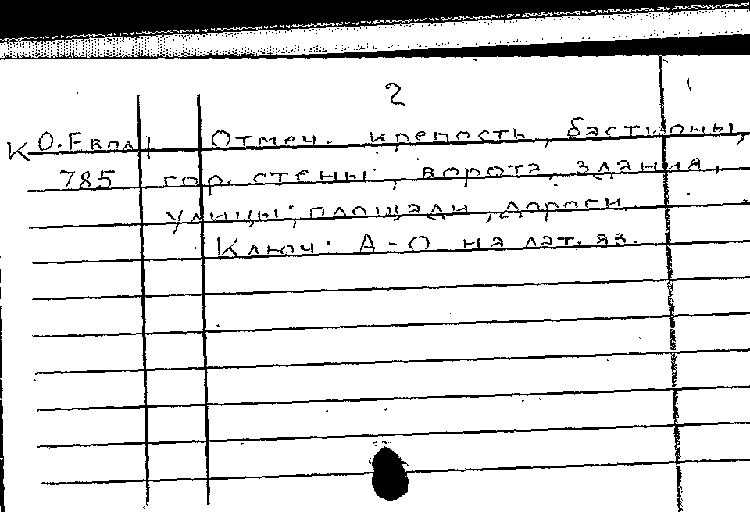 2
К О.Евла Отмеч. крепость, бастионы,
785 гор. стены, ворота, здания,
улицы, площади, дороги.
Ключ: А-О на лат. яз.